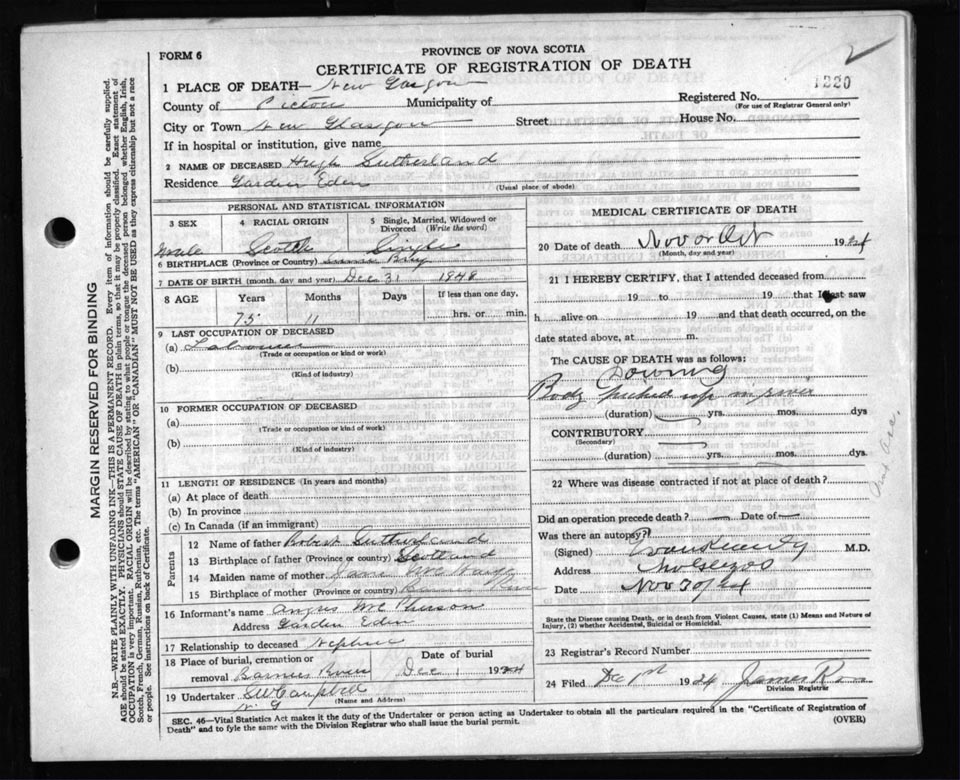 FORM 6
PROVINCE OF NOVA SCOTIA
CERTIFICATE OF REGISTRATION OF DEATH
2
1 PLACE OF DEATH— New Glasgow
Registered No. 1220
(For use of Registrar General only)
County of Pictou Municipality of
City or Town New Glasgow Street House No.
If in hospital or institution, give name
2 NAME OF DECEASED Hugh Sutherland
Residence Garden Eden
(Usual place of abode)
PERSONAL AND STATISTICAL INFORMATION
3 SEX 4 RACIAL ORIGIN 5 Single, Married, Widowed or Divorced (Write the word)
Male Scotch Single
6 BIRTHPLACE (Province or Country)
7 DATE OF BIRTH (month, day and year) Dec 31 1848
8 AGE Years Months Days If less than one day,
75 11 hrs. or min.
9 LAST OCCUPATION OF DECEASED
(a) Labourer
(Trade or occupation or kind or work)
(b)
(Kind of industry)
10 FORMER OCCUPATION OF DECEASED
(a)
(Trade or occupation or kind of work)
(b)
(Kind of industry)
11 LENGTH OF RESIDENCE (In years and months)
(a) At place of death
(b) In province
(c) In Canada (if an immigrant)
Parents
12 Name of father Robert Sutherland
13 Birthplace of father (Province or country) Scotland
14 Maiden name of mother
15 Birthplace of mother (Province or country) Barnies River
16 Informant's name Angus McPherson
Address Garden Eden
17 Relationship to deceased Nephew
18 Place of burial, cremation or removal Barnies River Date of burial Dec 1 1924
19 Undertaker SW Campbell
N. G.
(Name and Address)
MEDICAL CERTIFICATE OF DEATH
20 Date of death Nov or Oct 1924
(Month, day and year)
21 I HEREBY CERTIFY, that I attended deceased from
19 to 19 that I last saw
h alive on 19 and that death occurred, on the
date stated above, at m.
The CAUSE OF DEATH was as follows:
Drowning
Body picked up in river
(duration) yrs. mos. dys
CONTRIBUTORY
(Secondary)
(duration) yrs. mos. dys.
22 Where was disease contracted if not at place of death?
Did an operation precede death? — Date of —
Was there an autopsy?
(Signed) Evan Kennedy M.D.
Address
Date Nov 30/24
State the Disease causing Death, or in death from Violent Causes, state (1) Means and Nature of Injury, (2) whether Accidental, Suicidal or Homicidal.
23 Registrar's Record Number
24 Filed Dec 1st 1924 James
Division Registrar
SEC. 46—Vital Statistics Act makes it the duty of the Undertaker or person acting as Undertaker to obtain all the particulars required in the "Certificate of Registration of
Death" and to fyle the same with the Division Registrar who shall issue the burial permit. (OVER)
MARGIN RESERVED FOR BINDING
N.B.—WRITE PLAINLY WITH UNFADING INK—THIS IS A PERMANENT RECORD. Every item of information should be carefully supplied.
AGE should be stated EXACTLY. PHYSICIANS should STATE CAUSE OF DEATH in plain terms, so that it may be properly classified. Exact statement of
OCCUPATION is very important. RACIAL ORIGIN will be described by stating to what people or tongue the deceased person belonged whether English, Irish,
Scotch, French, German, Russian, Ruthenian, etc. The terms "AMERICAN" or "CANADIAN" MUST NOT BE USED as they express citizenship but not a race
or people. See instructions on back of Certificate.